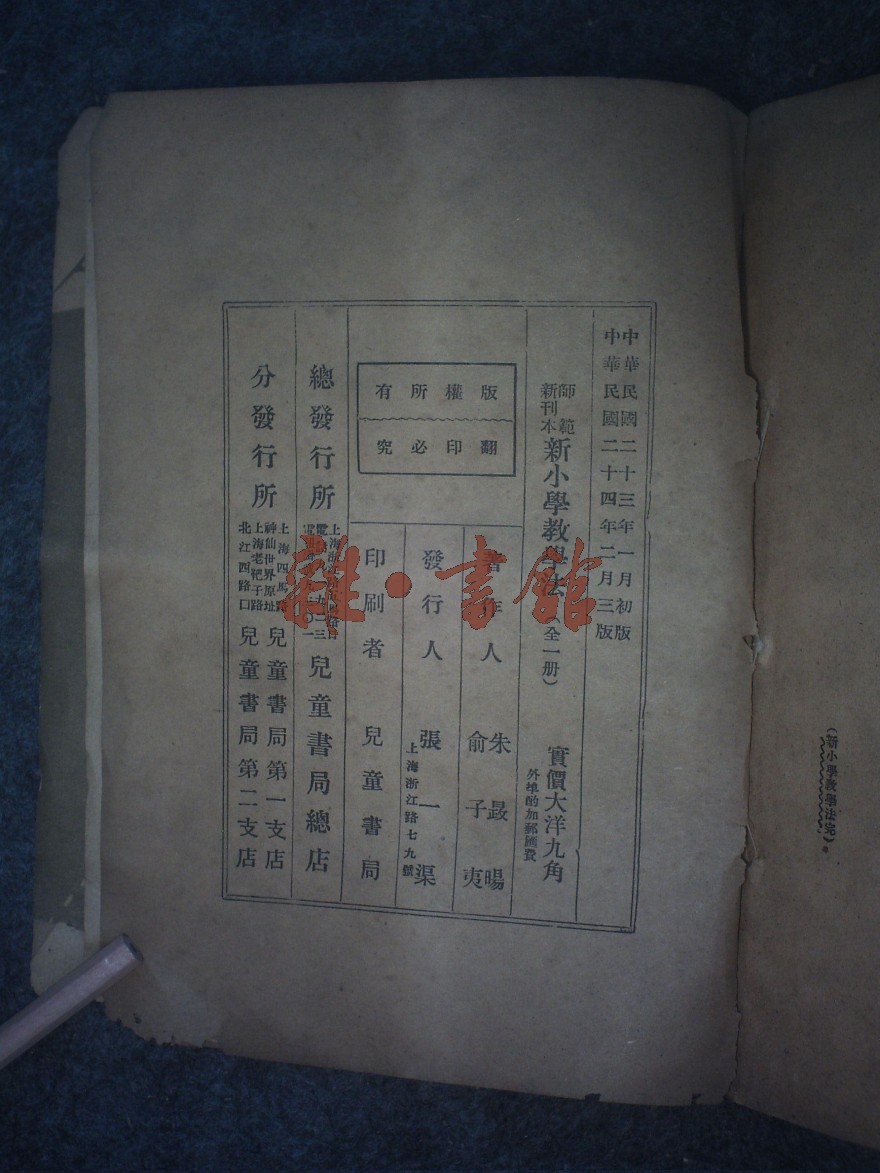 (新小學教學法完)。
中華民國二十三年一月初版
中華民國二十四年二月三版
師範
新刊本
新小學教學法(全一册)
實價大洋九角
外埠酌加郵匯費
版權所有
翻印必究
著作人
朱晸暘
俞子夷
發行人
張一渠
上海浙江路七九號
印刷者
兒童書局
總發行所
兒童書局總店
分發行所
上海四馬路
神仙世界原址
兒童書局第一支店
上海老靶子路
北江西路口
兒童書局第二支店
雜·書館